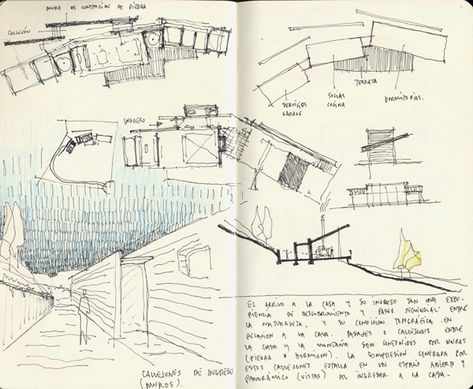 MURO DE CONTENCION DE PIEDRA
CALLEJÓN
SERVICIOS
GARAGE
SOCIAL
COCINA
TERRAZA
DORMITORIOS.
INGRESO
EL ARRIVO A LA CASA Y SU INGRESO SON UNA EXPE-
RIENCIA DE DESCUBRIMIENTO Y PASEO SECUENCIAL ENTRE
LA NATURALEZA, Y SU CONDICIÓN TOPOGRÁFICA EN
RELACION A LA CASA. PASAJES O CALLEJONES ENTRE
LA CASA Y LA MONTAÑA SON CONTENIDOS POR MUROS
(PIEDRA Y HORMIGON). LA COMPRESIÓN GENERADA POR
ESTOS CALLEJONES ESTALLA EN UN ESPACIO ABIERTO Y
PANORÁMICO (VISTAS) AL INGRESAR A LA CASA.
CALLEJONES DE INGRESO
(MUROS).